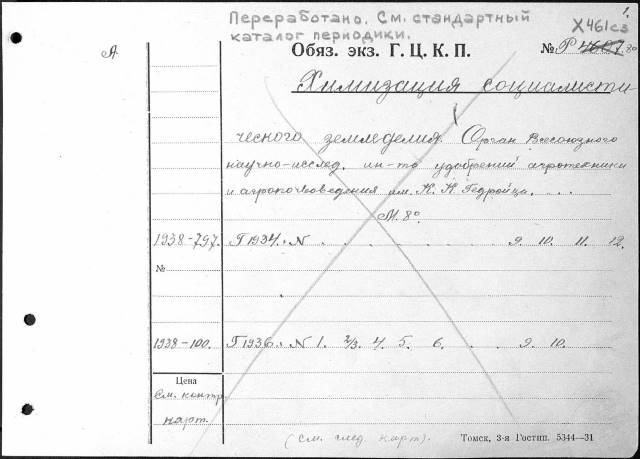 1.
Переработано. См. стандартный
каталог периодики.
Х461сз
А
Обяз. экз. Г. Ц. К. П. № Р 4607 80
Химизация социалисти-
ческого земледелия. Орган Всесоюзного
научно-исслед. ин-та удобрений агротехники
и агропочвоведения им. К. К. Гедройца. . . .
М. 8°
1938-797. Г 1934. N . . . . . . . . 9. 10. 11. 12.
№
1938-100. Г 1936. N 1. 2/3. 4. 5. 6. . . 9. 10.
Цена
См. контр.
карт.
(См. след. карт).
Томск, 3-я Гостип. 5344—31